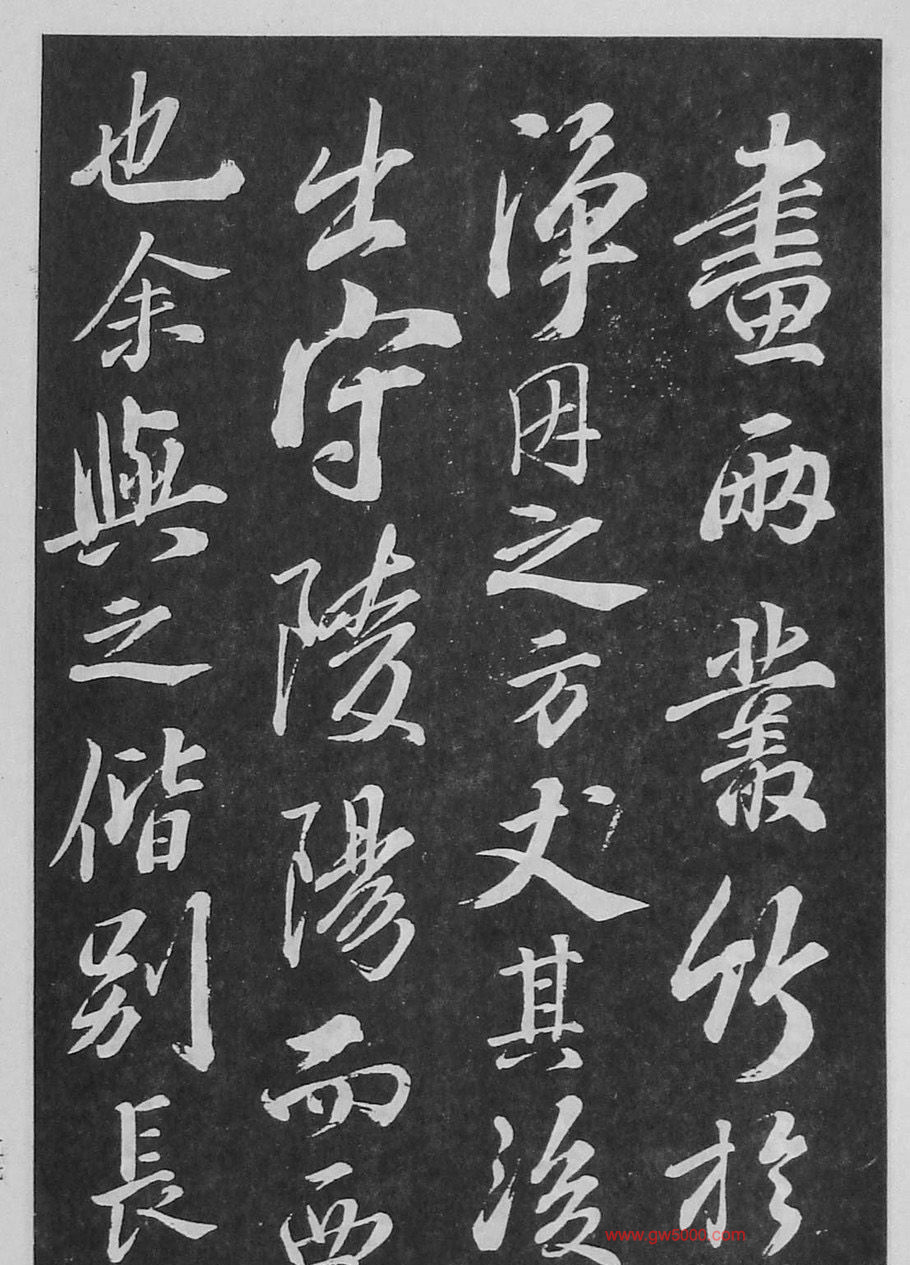 畫兩叢竹於
淨因之方丈其後
出守陵陽而西
也余與之偕別長
www.gw5000.com